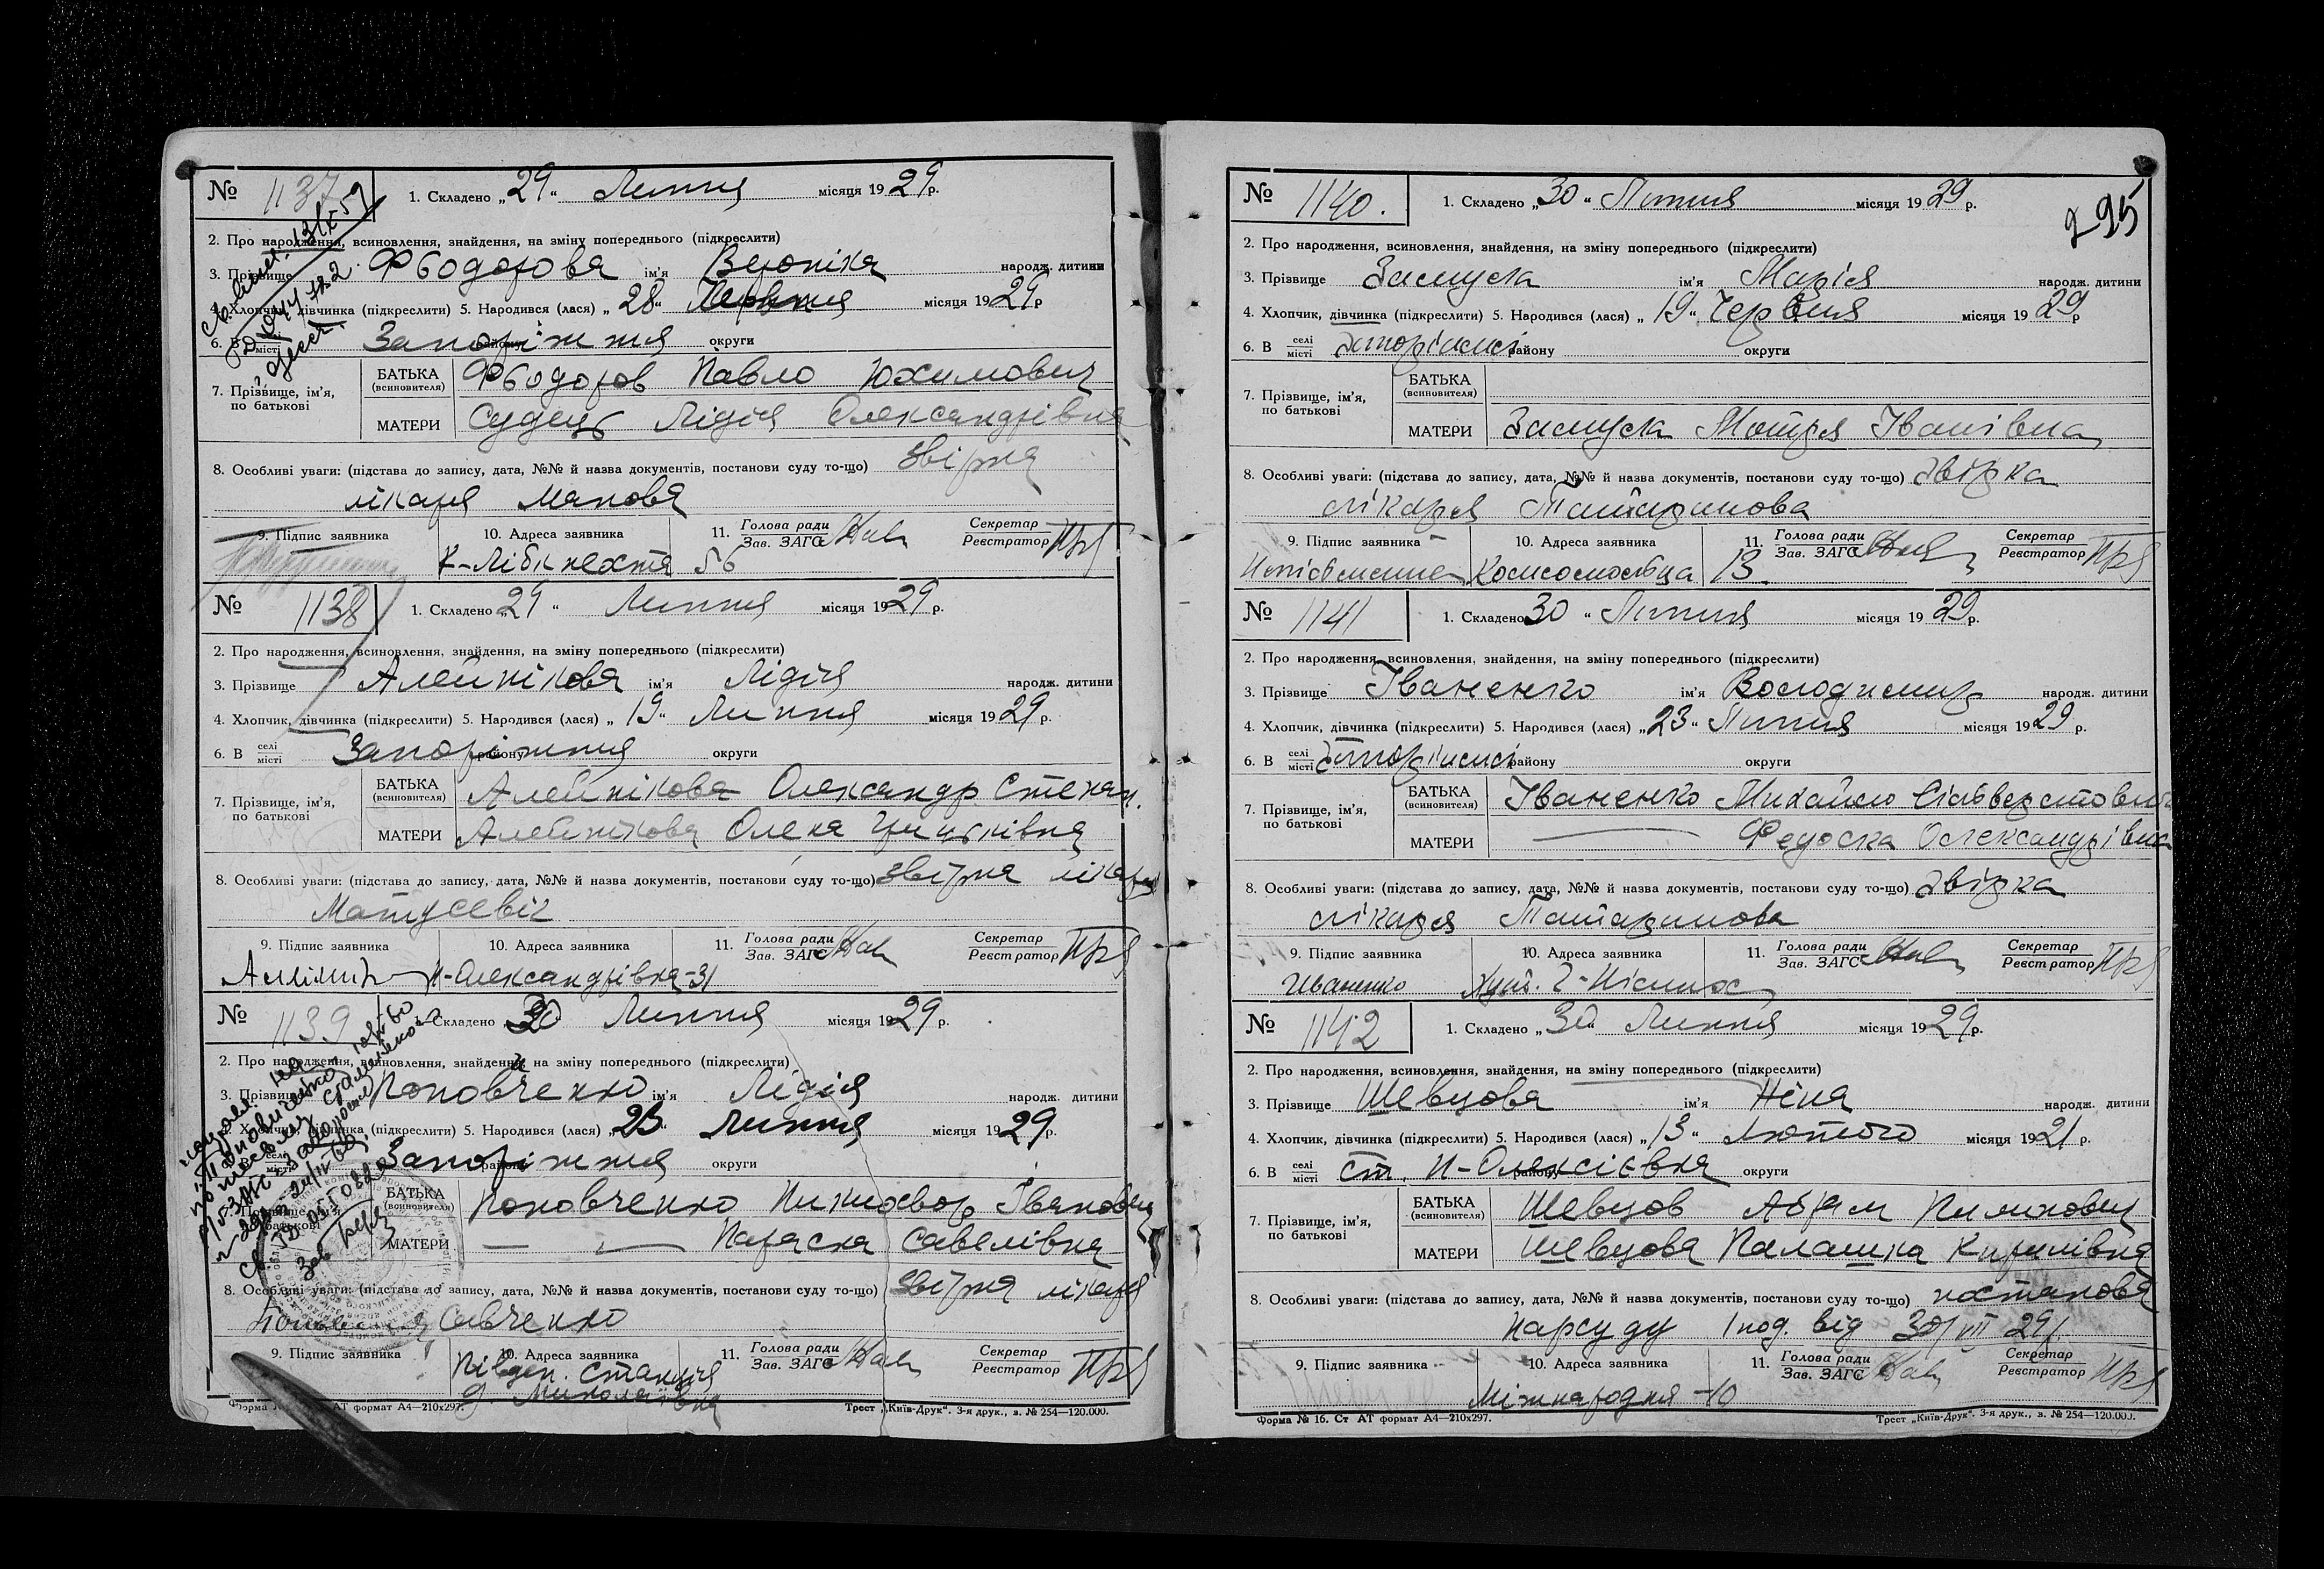 № 1137 1. Складено „29“ Липня місяця 1929 р.
2. Про народження, всиновлення, знайдення, на зміну попереднього (підкреслити)
3. Прізвище Фьодорова ім'я Вероніка народж. дитини
4. Хлопчик, дівчинка (підкреслити) 5. Народився (лася) „28“ Червня місяця 1929 р
6. В селі/місті Запоріжжя району округи
7. Прізвище, ім'я, по батькові
БАТЬКА (всиновителя) Фьодоров Павло Юхимович
МАТЕРИ Судець Лідія Олександрівна
8. Особливі уваги: (підстава до запису, дата, №№ й назва документів, постанови суду то-що) Звірка
лікаря
9. Підпис заявника 10. Адреса заявника 11. Голова ради Зав. ЗАГС Секретар Реєстратор
К-Лібкнехта 56
№ 1138 1. Складено „29“ Липня місяця 1929 р.
2. Про народження, всиновлення, знайдення, на зміну попереднього (підкреслити)
3. Прізвище Алейнікова ім'я Лідія народж. дитини
4. Хлопчик, дівчинка (підкреслити) 5. Народився (лася) „19“ Липня місяця 1929 р.
6. В селі/місті Запоріжжя району округи
7. Прізвище, ім'я, по батькові
БАТЬКА (всиновителя) Алейнікова Олександр Степан.
МАТЕРИ Алейнікова Олена
8. Особливі уваги: (підстава до запису, дата, №№ й назва документів, постанови суду то-що) Звірка лікаря
Матусевіч
9. Підпис заявника 10. Адреса заявника 11. Голова ради Зав. ЗАГС Секретар Реєстратор
Н-Олександрівка-31
№ 1139 1. Складено 30 Липня місяця 1929 р.
2. Про народження, всиновлення, знайдення, на зміну попереднього (підкреслити)
3. Прізвище Поповченко ім'я Лідія народж. дитини
4. Хлопчик, дівчинка (підкреслити) 5. Народився (лася) „23“ Липня місяця 1929 р.
6. В селі/місті Запоріжжя району округи
7. Прізвище, ім'я, по батькові
БАТЬКА (всиновителя) Поповченко Никифор Іванович
МАТЕРИ — — Параска Савелівна
8. Особливі уваги: (підстава до запису, дата, №№ й назва документів, постанови суду то-що) Звірка лікаря
Савченко
9. Підпис заявника 10. Адреса заявника 11. Голова ради Зав. ЗАГС Секретар Реєстратор
Півден. Станція
Миколаївка
Форма № АТ формат А4—210x297. Трест „Київ-Друк“. 3-я друк., з. № 254—120.000.
295
№ 1140. 1. Складено „30“ Липня місяця 1929 р.
2. Про народження, всиновлення, знайдення, на зміну попереднього (підкреслити)
3. Прізвище Замула ім'я Марія народж. дитини
4. Хлопчик, дівчинка (підкреслити) 5. Народився (лася) „19“ Червня місяця 1929 р
6. В селі/місті Запоріжжі району округи
7. Прізвище, ім'я, по батькові
БАТЬКА (всиновителя)
МАТЕРИ Мотря Іванівна
8. Особливі уваги: (підстава до запису, дата, №№ й назва документів, постанови суду то-що) Звірка
лікаря Татаринова
9. Підпис заявника 10. Адреса заявника 11. Голова ради Зав. ЗАГС Секретар Реєстратор
Неписьменна Комсомольця 13.
№ 1141 1. Складено 30 “ Липня місяця 1929 р.
2. Про народження, всиновлення, знайдення, на зміну попереднього (підкреслити)
3. Прізвище Іваненко ім'я Володимир народж. дитини
4. Хлопчик, дівчинка (підкреслити) 5. Народився (лася) „23“ Липня місяця 1929 р.
6. В селі/місті Запоріжжі району округи
7. Прізвище, ім'я, по батькові
БАТЬКА (всиновителя) Іваненко Михайло Сільверстович
МАТЕРИ — Федоска Олександрівна
8. Особливі уваги: (підстава до запису, дата, №№ й назва документів, постанови суду то-що) Звірка
лікаря Татаринова
9. Підпис заявника 10. Адреса заявника 11. Голова ради Зав. ЗАГС Секретар Реєстратор
Иваненко
№ 1142 1. Складено „30“ Липня місяця 1929 р.
2. Про народження, всиновлення, знайдення, на зміну попереднього (підкреслити)
3. Прізвище Шевцова ім'я Ніна народж. дитини
4. Хлопчик, дівчинка (підкреслити) 5. Народився (лася) „13“ Лютого місяця 1921 р.
6. В селі/місті ст. Н-Олексієвка району округи
7. Прізвище, ім'я, по батькові
БАТЬКА (всиновителя) Шевцов Абрам Пилипович
МАТЕРИ Шевцова Палашка Кирилівна
8. Особливі уваги: (підстава до запису, дата, №№ й назва документів, постанови суду то-що) постанова
Нарсуду від 30/VII 29 р.
9. Підпис заявника 10. Адреса заявника 11. Голова ради Зав. ЗАГС Секретар Реєстратор
Міжнародня -10
Форма № 16. Ст АТ формат А4—210x297. Трест „Київ-Друк“. 3-я друк., з. № 254—120.000.